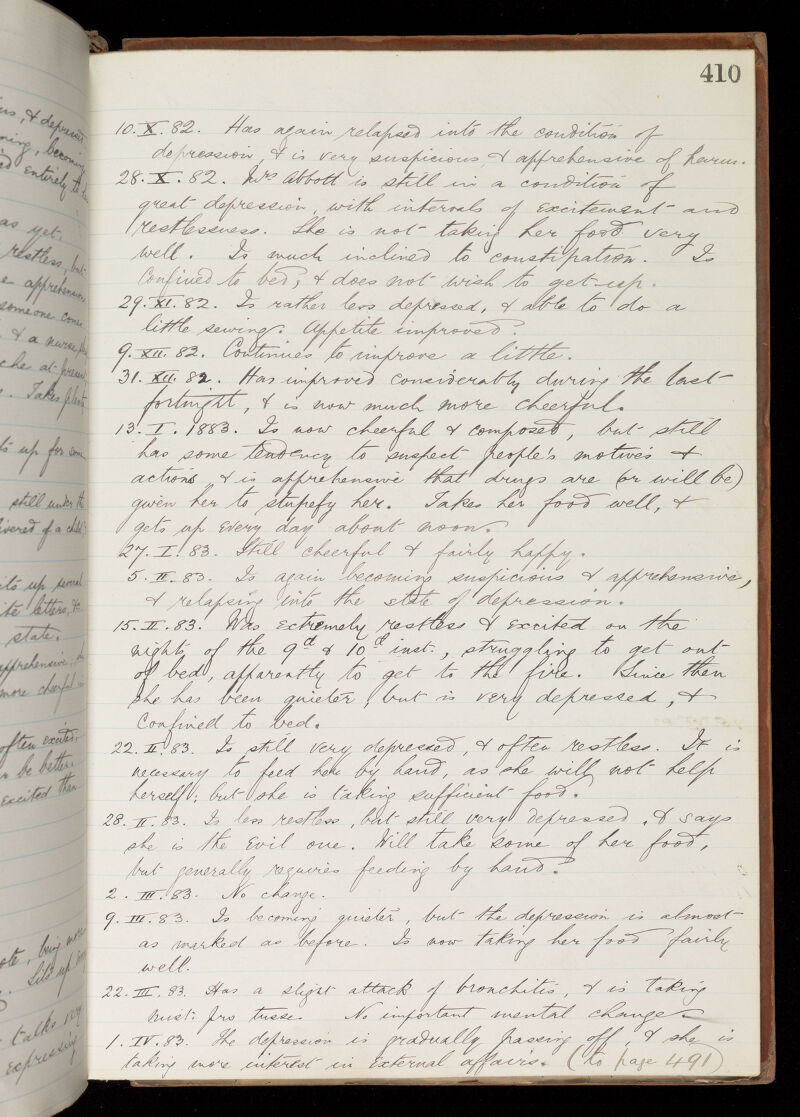 ns, & depressed
ning, becoming
ed entirely to
as yet.
restless, but
e apprehensive
someone comes
& a nurse
che at present
s. Takes plenty
its up for some
still under the
livered of a child
its up several
ite letters, &c
state.
apprehensive; &
more cheerful
often excited,
n be better
Excited then
ote, being more
. Sits up
talks very
expressing
410
10.X.82. Has again relapsed into the condition of
depression, & is very suspicious & apprehensive of harm.
28.X.82. Mrs Abbott is still in a condition of
great depression, with intervals of excitement and
restlessness. She is not taking her food very
well. Is much inclined to constipation. Is
confined to bed, & does not wish to get up.
29.XI.82. Is rather less depressed, & able to do a
little sewing. Appetite improved.
9.XII.82. Continues to improve a little.
31.XII.82. Has improved considerably during the last
fortnight, & is now much more cheerful.
13.I.1883. Is now cheerful & composed, but still
has some tendency to suspect people's motives &
actions, & is apprehensive that drugs are (or will be)
given her to stupefy her. Takes her food well, &
gets up every day about noon.
27.I.83. Still cheerful & fairly happy.
5.II.83. Is again becoming suspicious & apprehensive,
& relapsing into the state of depression.
15.II.83. Was extremely restless & excited on the
nights of the 9d & 10d inst., struggling to get out
of bed, apparently to get to the fire. Since then
she has been quieter, but is very depressed, &
confined to bed.
22.II.83. Is still very depressed, & often restless. It is
necessary to feed her by hand, as she will not help
herself; but she is taking sufficient food.
28.II.83. Is less restless, but still very depressed, & says
she is the Evil one. Will take some of her food,
but generally requires feeding by hand.
2.III.83. No change.
9.III.83. Is becoming quieter, but the depression is almost
as marked as before. Is now taking her food fairly
well.
22.III.83. Has a slight attack of bronchitis, & is taking
mist: pro tusse. No important mental change.
1.IV.83. The depression is gradually passing off, & she is
taking more interest in external affairs. (to page 491)